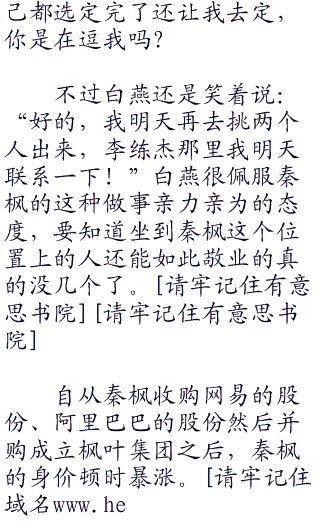 己都选定完了还让我去定，
你是在逗我吗？
不过白燕还是笑着说：
“好的，我明天再去挑两个
人出来，李练杰那里我明天
联系一下！”白燕很佩服秦
枫的这种做事亲力亲为的态
度，要知道坐到秦枫这个位
置上的人还能如此敬业的真
的没几个了。[请牢记住有意
思书院][请牢记住有意思书
院]
自从秦枫收购网易的股
份、阿里巴巴的股份然后并
购成立枫叶集团之后，秦枫
的身价顿时暴涨。[请牢记住
域名www.he